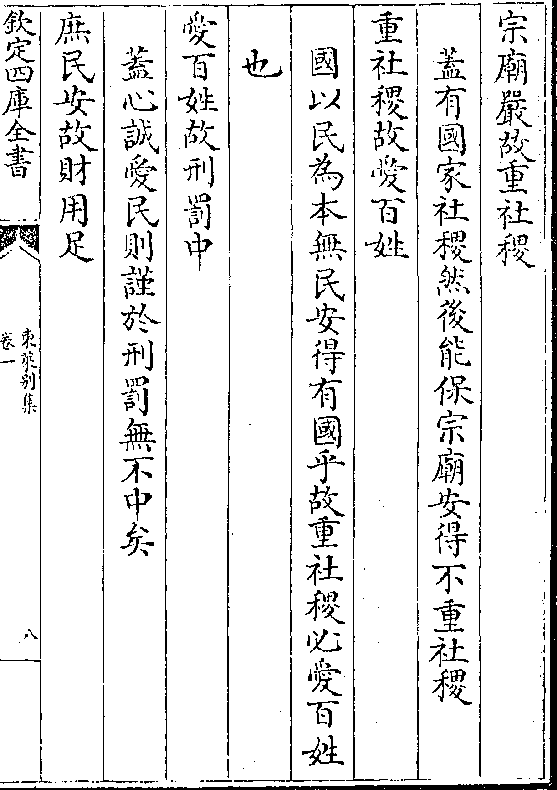 宗廟嚴故重社稷
蓋有國家社稷然後能保宗廟安得不重社稷
重社稷故愛百姓
國以民為本無民安得有國乎故重社稷必愛百姓
也
愛百姓故刑罰中
蓋心誠愛民則謹於刑罰無不中矣
庶民安故財用足
欽定四庫全書
東萊别集
卷一
八